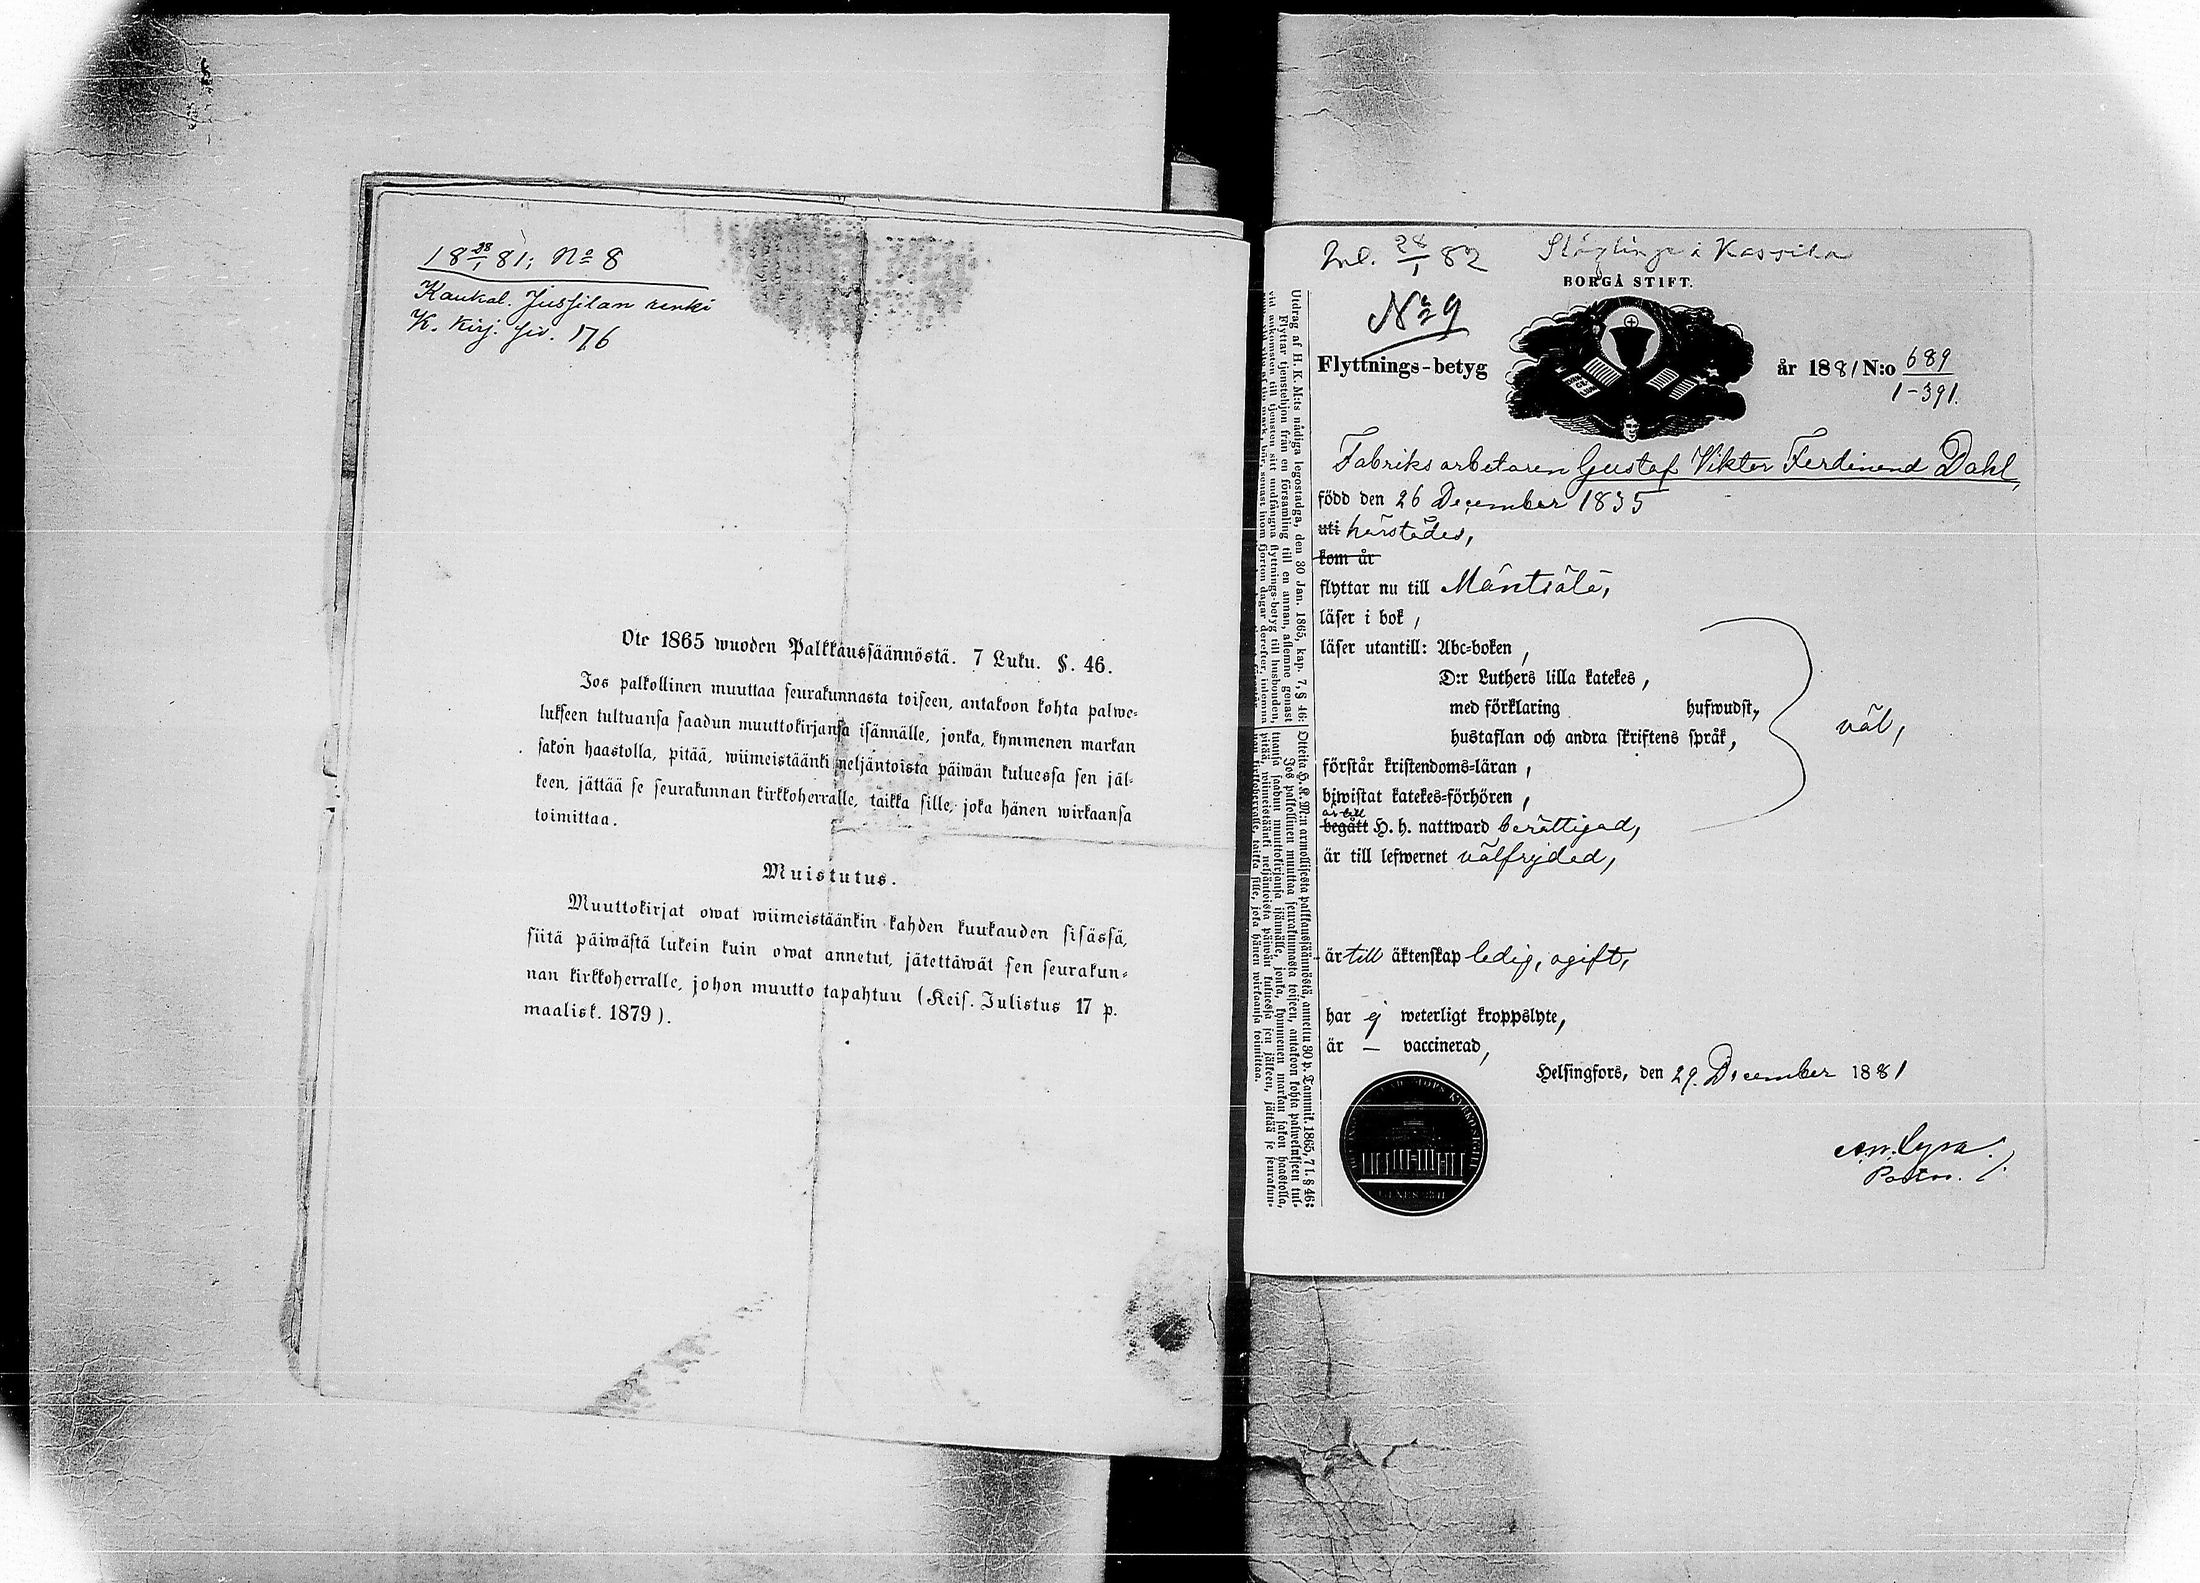 18 28/1 81; No 8
Kaukal. Jussilan renki
K. Kirj. siv. 176
Ote 1865 wuoden Palkkaussäännöstä. 7 Luku. §. 46.
Jos palkollinen muuttaa seurakunnasta toiseen, antakoon kohta palwe-
lukseen tultuansa saadun muuttokirjansa isännälle, jonka, kymmenen markan
sakon haastolla, pitää, wiimeistäänki neljäntoista päiwän kuluessa sen jäl-
keen, jättää se seurakunnan kirkkoherralle, taikka sille, joka hänen wirkaansa
toimittaa.
Muistutus.
Muuttokirjat owat wiimeistäänkin kahden kuukauden sisässä,
siitä päiwästä lukein kuin owat annetut, jätettäwät sen seurakun-
nan kirkkoherralle, johon muutto tapahtuu (Keis. Julistus 17 p.
maalisk. 1879).
Inl. 28/1 82
No 9
BORGÅ STIFT.
Flyttnings-betyg
år 1881 N:o 689
1-391.
Fabriksarbetaren Gustaf Viktor Ferdinend Dahl,
född den 26 December 1835
uti härstädes,
kom år
flyttar nu till Mäntsälä,
läser i bok,
läser utantill: Abc-boken,
D:r Luthers lilla katekes,
med förklaring hufwudst,
hustaflan och andra skriftens språk,
väl,
förstår kristendoms-läran,
biwistat katekes-förhören,
är till
begått H. h. nattward berättigad,
är till lefwernet välfrejdad,
är till äktenskap ledig, ogift,
har ej weterligt kroppslyte,
är — vaccinerad,
Helsingfors, den 29 December 1881
Pastor.
Utdrag af H. K. M:ts nådiga legostadga, den 30 Jan. 1865, kap. 7, § 46:
Flyttar tjenstehjon från en församling till en annan, aflemne genast
vid ankomsten till tjensten sitt undfångna flyttnings-betyg till husbonden,
Otteita H. K. M:n armollisesta palkkaussäännöstä, annettu 30 p. Tammik. 1865, 7 l. § 46:
Jos palkollinen muuttaa seurakunnasta toiseen, antakoon kohta palwelukseen tul-
tuansa saadun muuttokirjansa isännälle, jonka, kymmenen markan sakon haastolla,
pitää, wiimeistäänki neljäntoista päiwän kuluessa sen jälkeen, jättää se seurakun-
nan kirkkoherralle, taikka sille, joka hänen wirkaansa toimittaa.